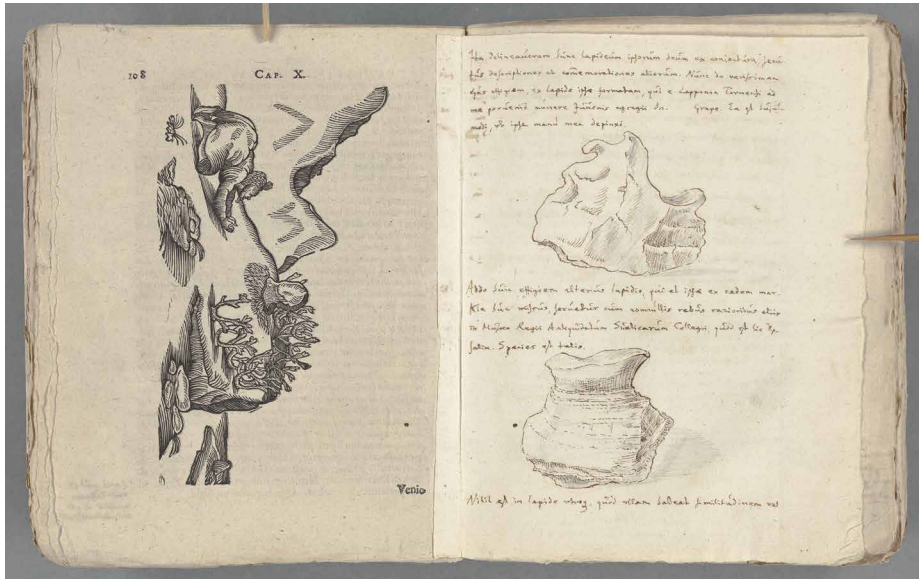 108
CAP. X.
Venio
Ita delineaveram hunc lapideum ipsorum deum ex conjectura, secu-
tus descriptiones et commemorationes aliorum. Nunc do verissimam
ejus effigiem, ex lapide ipso formatam, qui e Lapponia Tornensi ad
me pervenit munere juvenis egregii Dn. Grape. Ea est hujus-
modi, ut ipse manu mea depinxi.
Addo hunc effigiem alterius lapidis, qui et ipse ex eadem mar-
huc missus, servatur cum nonnullis rebus rarioribus aliis
in Museo Regii Antiquitatum Collegii, quod est hic Up-
salia. Species est talis.
Nihil est in lapide utroq, quod ullam habeat similitudinem vel